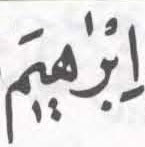 اِبْرٰهٖيمَ